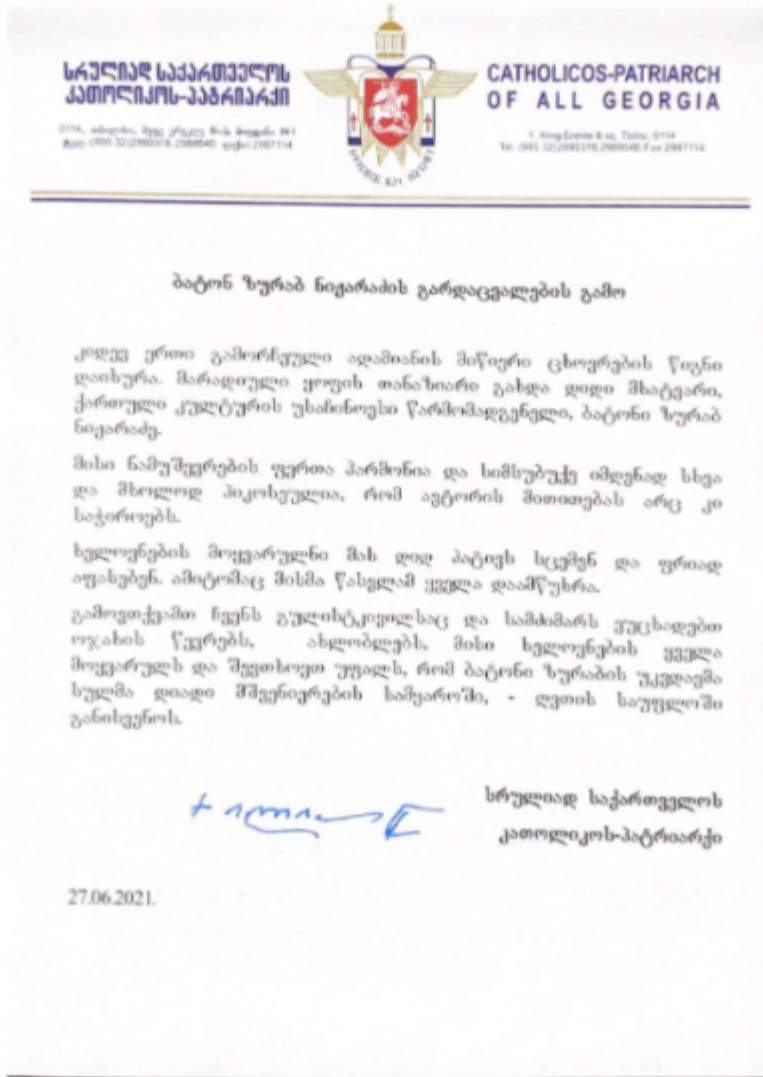 სრულიად საქართველოს
კათოლიკოს-პატრიარქი
CATHOLICOS-PATRIARCH
OF ALL GEORGIA
0114, თბილისი, მეფე ერეკლე II-ის მოედანი №1
ტელ: (995 32)2990378, 2989540; ფაქსი: 2987114
1, King Erekle II sq. Tbilisi, 0114
Tel: (995 32)2990378,2989540; Fax:2987114
ბატონ ზურაბ ნიჟარაძის გარდაცვალების გამო
კიდევ ერთი გამორჩეული ადამიანის მიწიერი ცხოვრების წიგნი
დაიხურა. მარადიული ყოფის თანაზიარი გახდა დიდი მხატვარი,
ქართული კულტურის უსაჩინოესი წარმომადგენელი, ბატონი ზურაბ
ნიჟარაძე.
მისი ნამუშევრების ფერთა ჰარმონია და სიმსუბუქე იმდენად სხვა
და მხოლოდ პიკოსეულია, რომ ავტორის მითითებას არც კი
საჭიროებს.
ხელოვნების მოყვარულნი მას დიდ პატივს სცემენ და ფრიად
აფასებენ. ამიტომაც მისმა წასვლამ ყველა დაამწუხრა.
გამოვთქვამთ ჩვენს გულისტკივილსაც და სამძიმარს ვუცხადებთ
ოჯახის წევრებს, ახლობლებს, მისი ხელოვნების ყველა
მოყვარულს და შევთხოვთ უფალს, რომ ბატონი ზურაბის უკვდავმა
სულმა დიადი მშვენიერების სამყაროში, - ღვთის საუფლოში
განისვენოს.
სრულიად საქართველოს
კათოლიკოს-პატრიარქი
27.06.2021.